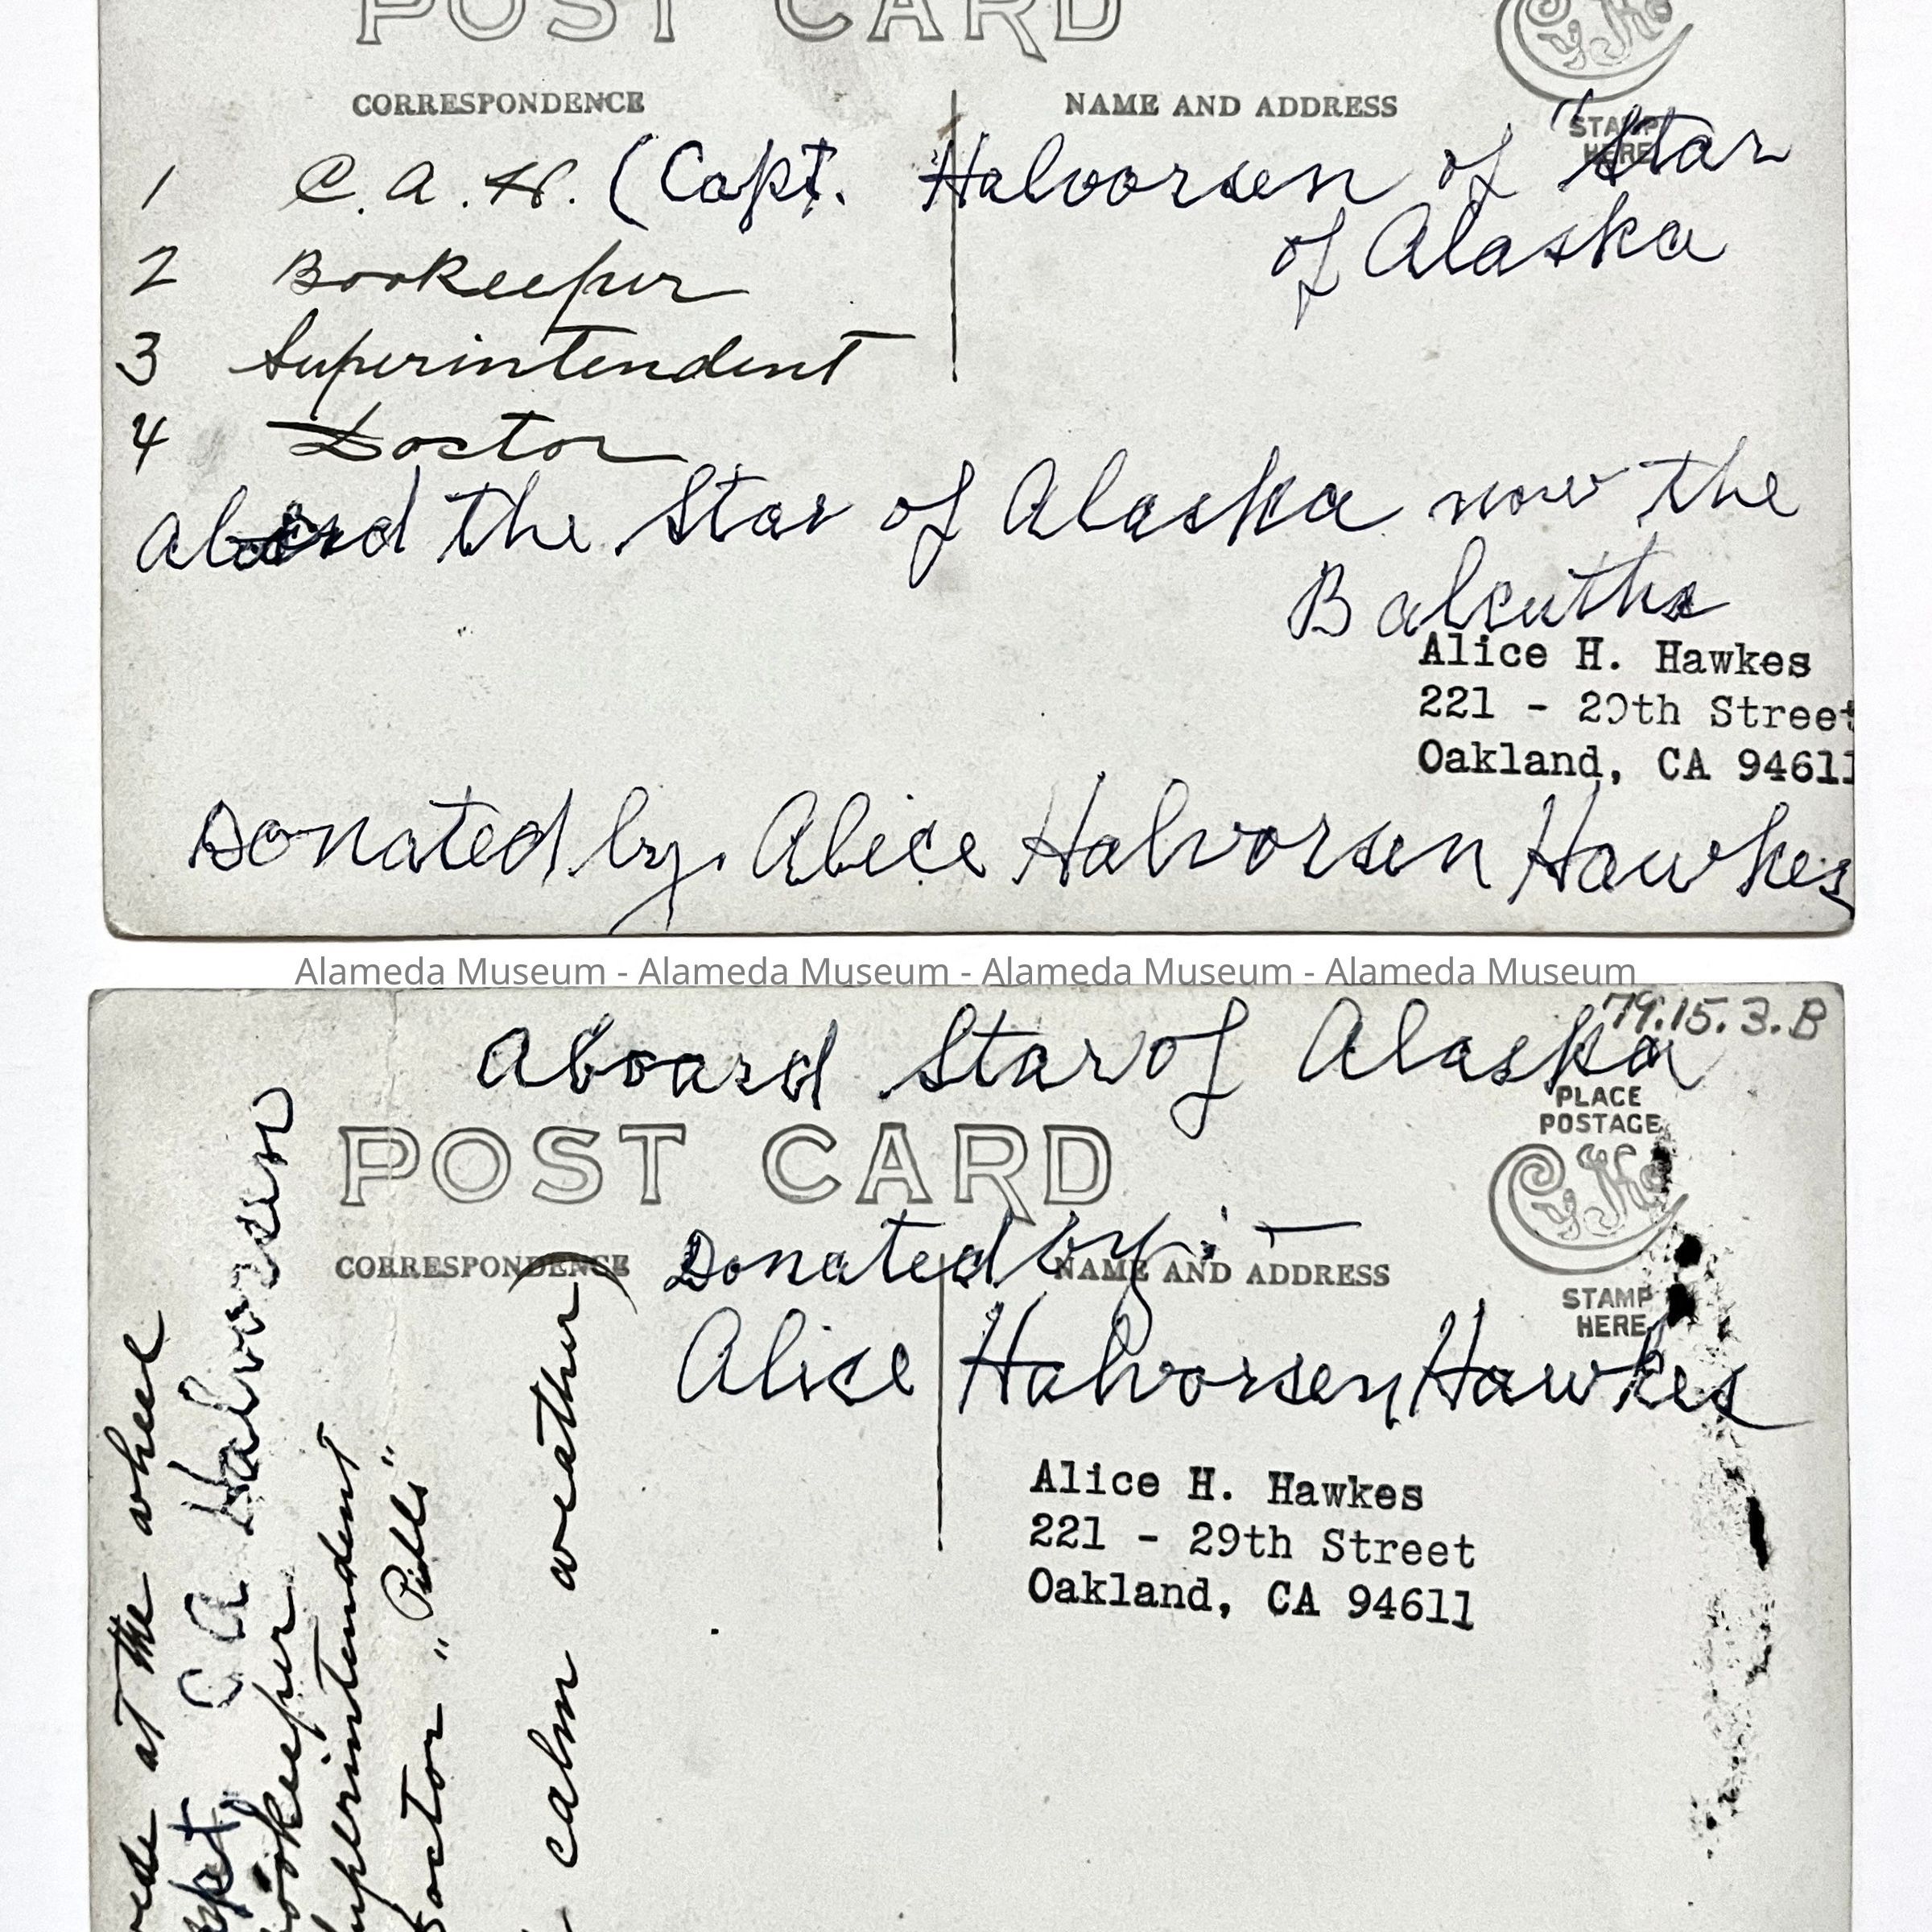 POST CARD
CORRESPONDENCE
NAME AND ADDRESS
STAMP
HERE
1 C. A. H. (Capt. Halvorsen of "Star
of Alaska
2 Bookeeper
3 Superintendent
4 Doctor
aboard the Star of Alaska now the
Balcutha
Alice H. Hawkes
221 - 29th Street
Oakland, CA 94611
Donated by. Alice Halvorsen Hawkes
Alameda Museum - Alameda Museum - Alameda Museum - Alameda Museum
79.15.3.B
Aboard Star of Alaska
PLACE
POSTAGE
POST CARD
CYKO
CORRESPONDENCE
NAME AND ADDRESS
STAMP
HERE
Donated by: —
Alice Halvorsen Hawkes
Alice H. Hawkes
221 - 29th Street
Oakland, CA 94611
at the wheel
C A Halvorsen
ookeeper
uperintendent
octor "Pills"
calm weather)